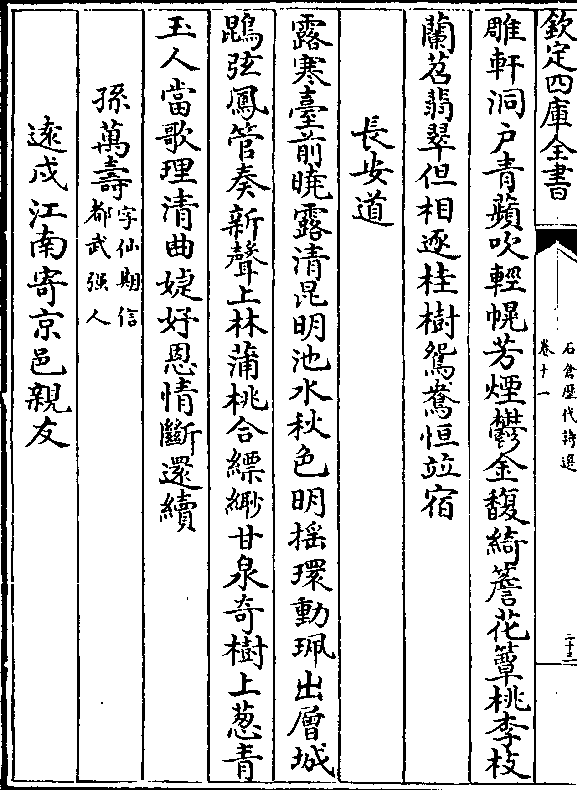 欽定四庫全書
石倉歷代詩選
卷十一
二十二
雕軒洞户青蘋吹輕幌芳煙鬱金馥綺簷花簟桃李枝
蘭苕翡翠但相逐桂樹鴛鴦恒竝宿
長安道
露寒臺前曉露清昆明池水秋色明揺環動珮出層城
鵾弦鳳管奏新聲上林蒲桃合縹緲甘泉奇樹上葱青
玉人當歌理清曲婕妤恩情斷還續
孫萬壽字仙期信都武强人
逺戍江南寄京邑親友